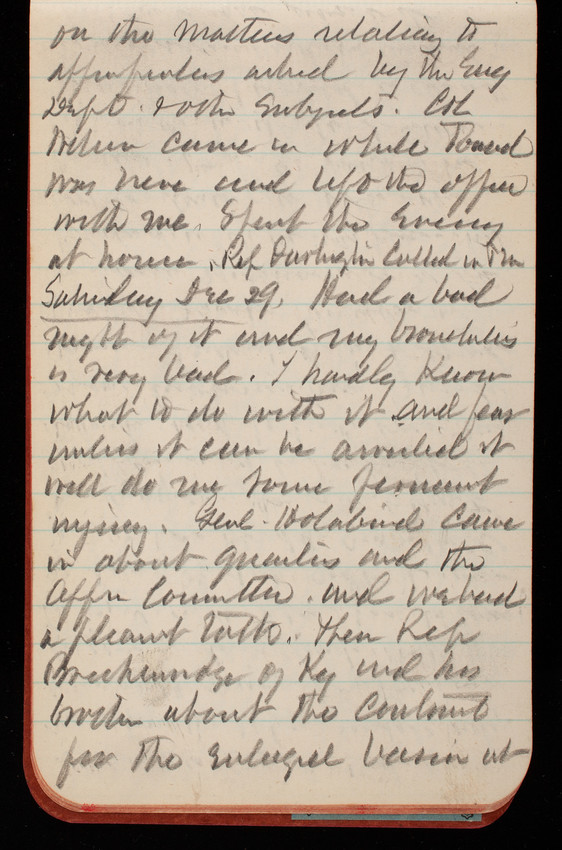 on the matters relating to
appropriations asked by the Eng
Dept. & other subjects. Col
Wilson came in while
was here and left the office
with me. Spent the Evening
at home. Rep Darlington Called in
Saturday Dec 29. Had a bad
night of it and my bronchitis
is very bad. I hardly Know
what to do with it and fear
unless it can be arrested it
will do me some permanent
injury. Genl. Holabird came
in about quarters and the
Appn Committee. and we had
a pleasant talk. Then Rep
Breckenridge of Ky and his
brother about the contract
for the Enlarged basin at